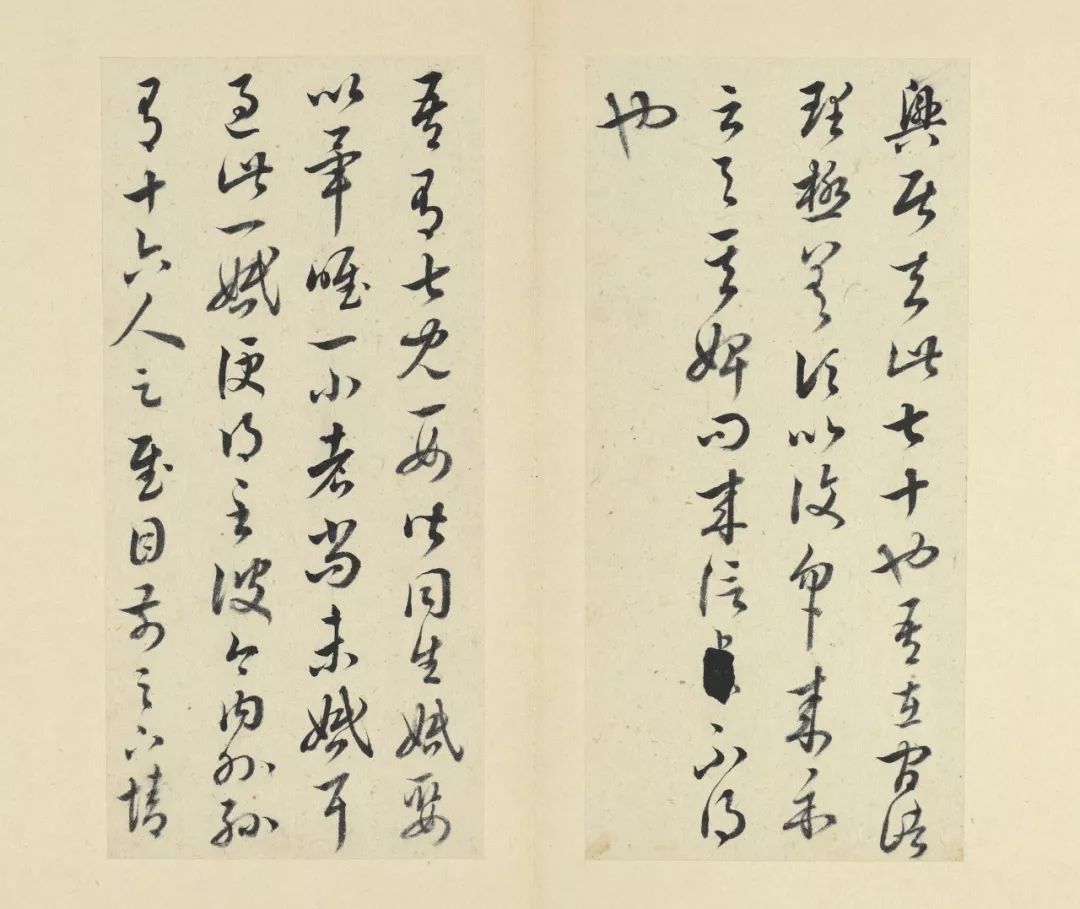 興居去此七十也吾在官諸
理極差頃以復勿勿來示
云與其婢問來信不得
也
吾有七兒一女皆同生婚娶
以畢唯一小者尚未婚耳
過此一婚便得至彼今內外孫
有十六人足慰目前足下情